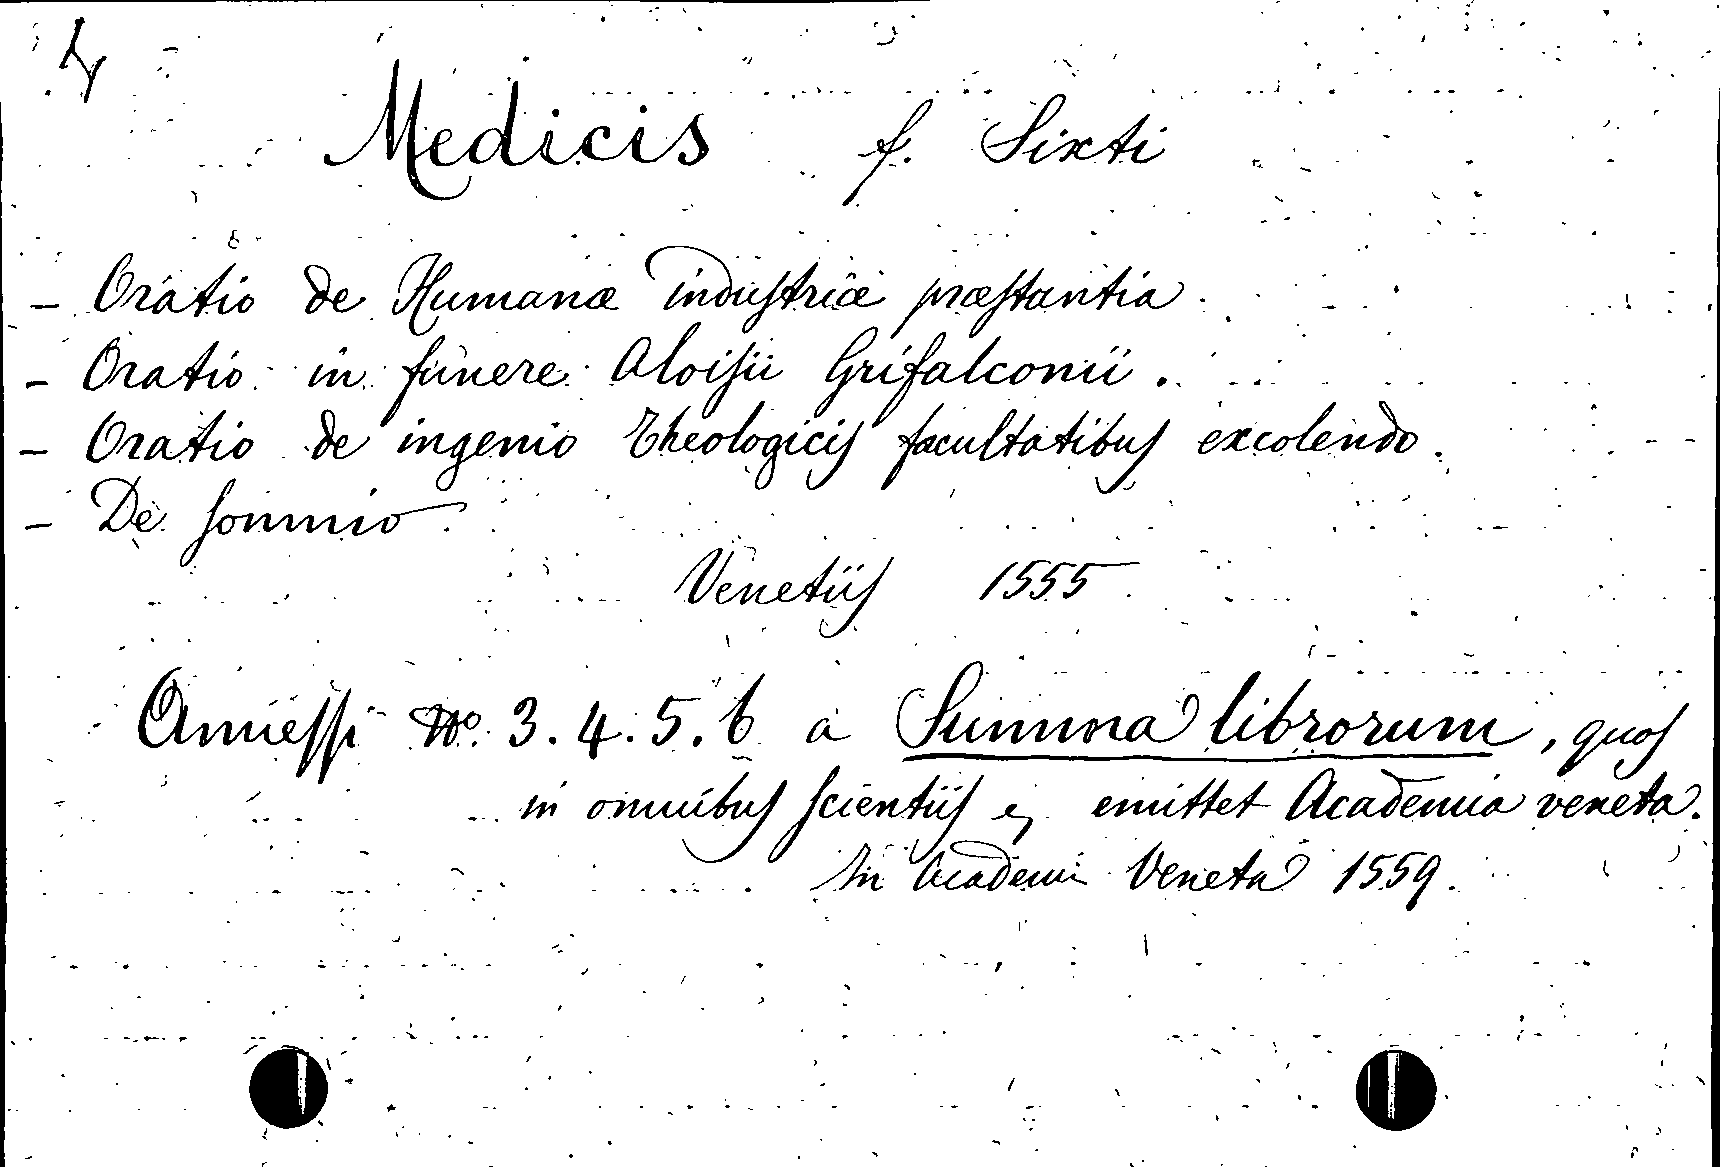 Medicis f. Sixti
- Oratio de Humanæ industriæ præstantia.
- Oratio in funere Aloisii Grifalconii.
- Oratio de ingenio Theologicis facultatibus excolendo.
- De somnio.
Venetiis 1555
Annessi No. 3. 4. 5. 6 a Summa librorum, quos
in omnibus scientiis emittet Academia veneta.
In Academi Veneta 1559.